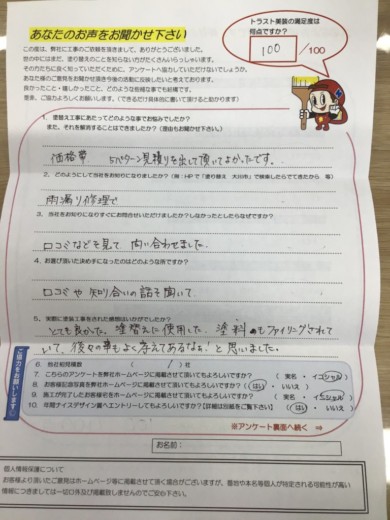 あなたのお声をお聞かせ下さい
トラスト美装の満足度は
何点ですか？
100 /100
この度は、弊社に工事のご依頼を頂きまして、ありがとうございました。
世の中にはまだ、塗り替えのことを知らない方がたくさんいらっしゃいます。
その方たちに良く知っていただくために、アンケートへ協力していただけないでしょうか。
あなた様のご意見をお聞かせ頂き今後の活動に反映したいと考えております。
良かったこと・嬉しかったこと、どのような些細な事でも結構です。
是非、ご協力よろしくお願いします。（できるだけ具体的に書いて頂けると助かります）
1. 塗替え工事にあたってどのような事でお悩みでしたか？
また、それを解消することはできましたか？（理由もお聞かせ下さい。）
価格帯. 5パターン見積りを出して頂いてよかったです。
2. どのようにして当社をお知りになりましたか？（例：HPで「塗り替え 大川市」で検索したらでてきたから 等）
雨漏り修理で
3. 当社をお知りになりすぐにお問合せいただけましたか？しなかったとしたらなぜですか？
口コミなどを見て 問い合わせました.
4. お選び頂いた決め手になったのはどのような所ですか？
口コミや 知り合いの話を聞いて.
5. 実際に塗装工事をされた感想はいかがでしたか？
とても良かった. 塗替えに使用した. 塗料 もファイリングされて
いて、後々の事もよく考えてあるなぁ！と思いました。
ご協力をお願いします！
6. 相見積問題数 （ 1 ）社
7. こちらのアンケートを弊社ホームページに掲載させて頂いてもよろしいですか？ （ 実名 ・ イニシャル ）
8. お客様記念写真を弊社ホームページに掲載させて頂いてもよろしいですか？ （ はい ・ いいえ ）
9. 施工が完了したお客様宅をホームページに掲載させて頂いてもよろしいですか？ （ 実名 ・ イニシャル ）
10. 年間ナイスデザイン賞へエントリーしてもよろしいですか？【詳細は別紙をご覧下さい】 （ はい ・ いいえ ）
※アンケート裏面へ続く ⇒
お名前：
個人情報保護について
お客様より頂いたご意見はホームページ等に掲載させて頂く場合がございますが、番地や本名等個人が特定される可能性が高い
情報につきましては一切口外及び掲載致しませんのでご安心下さい。